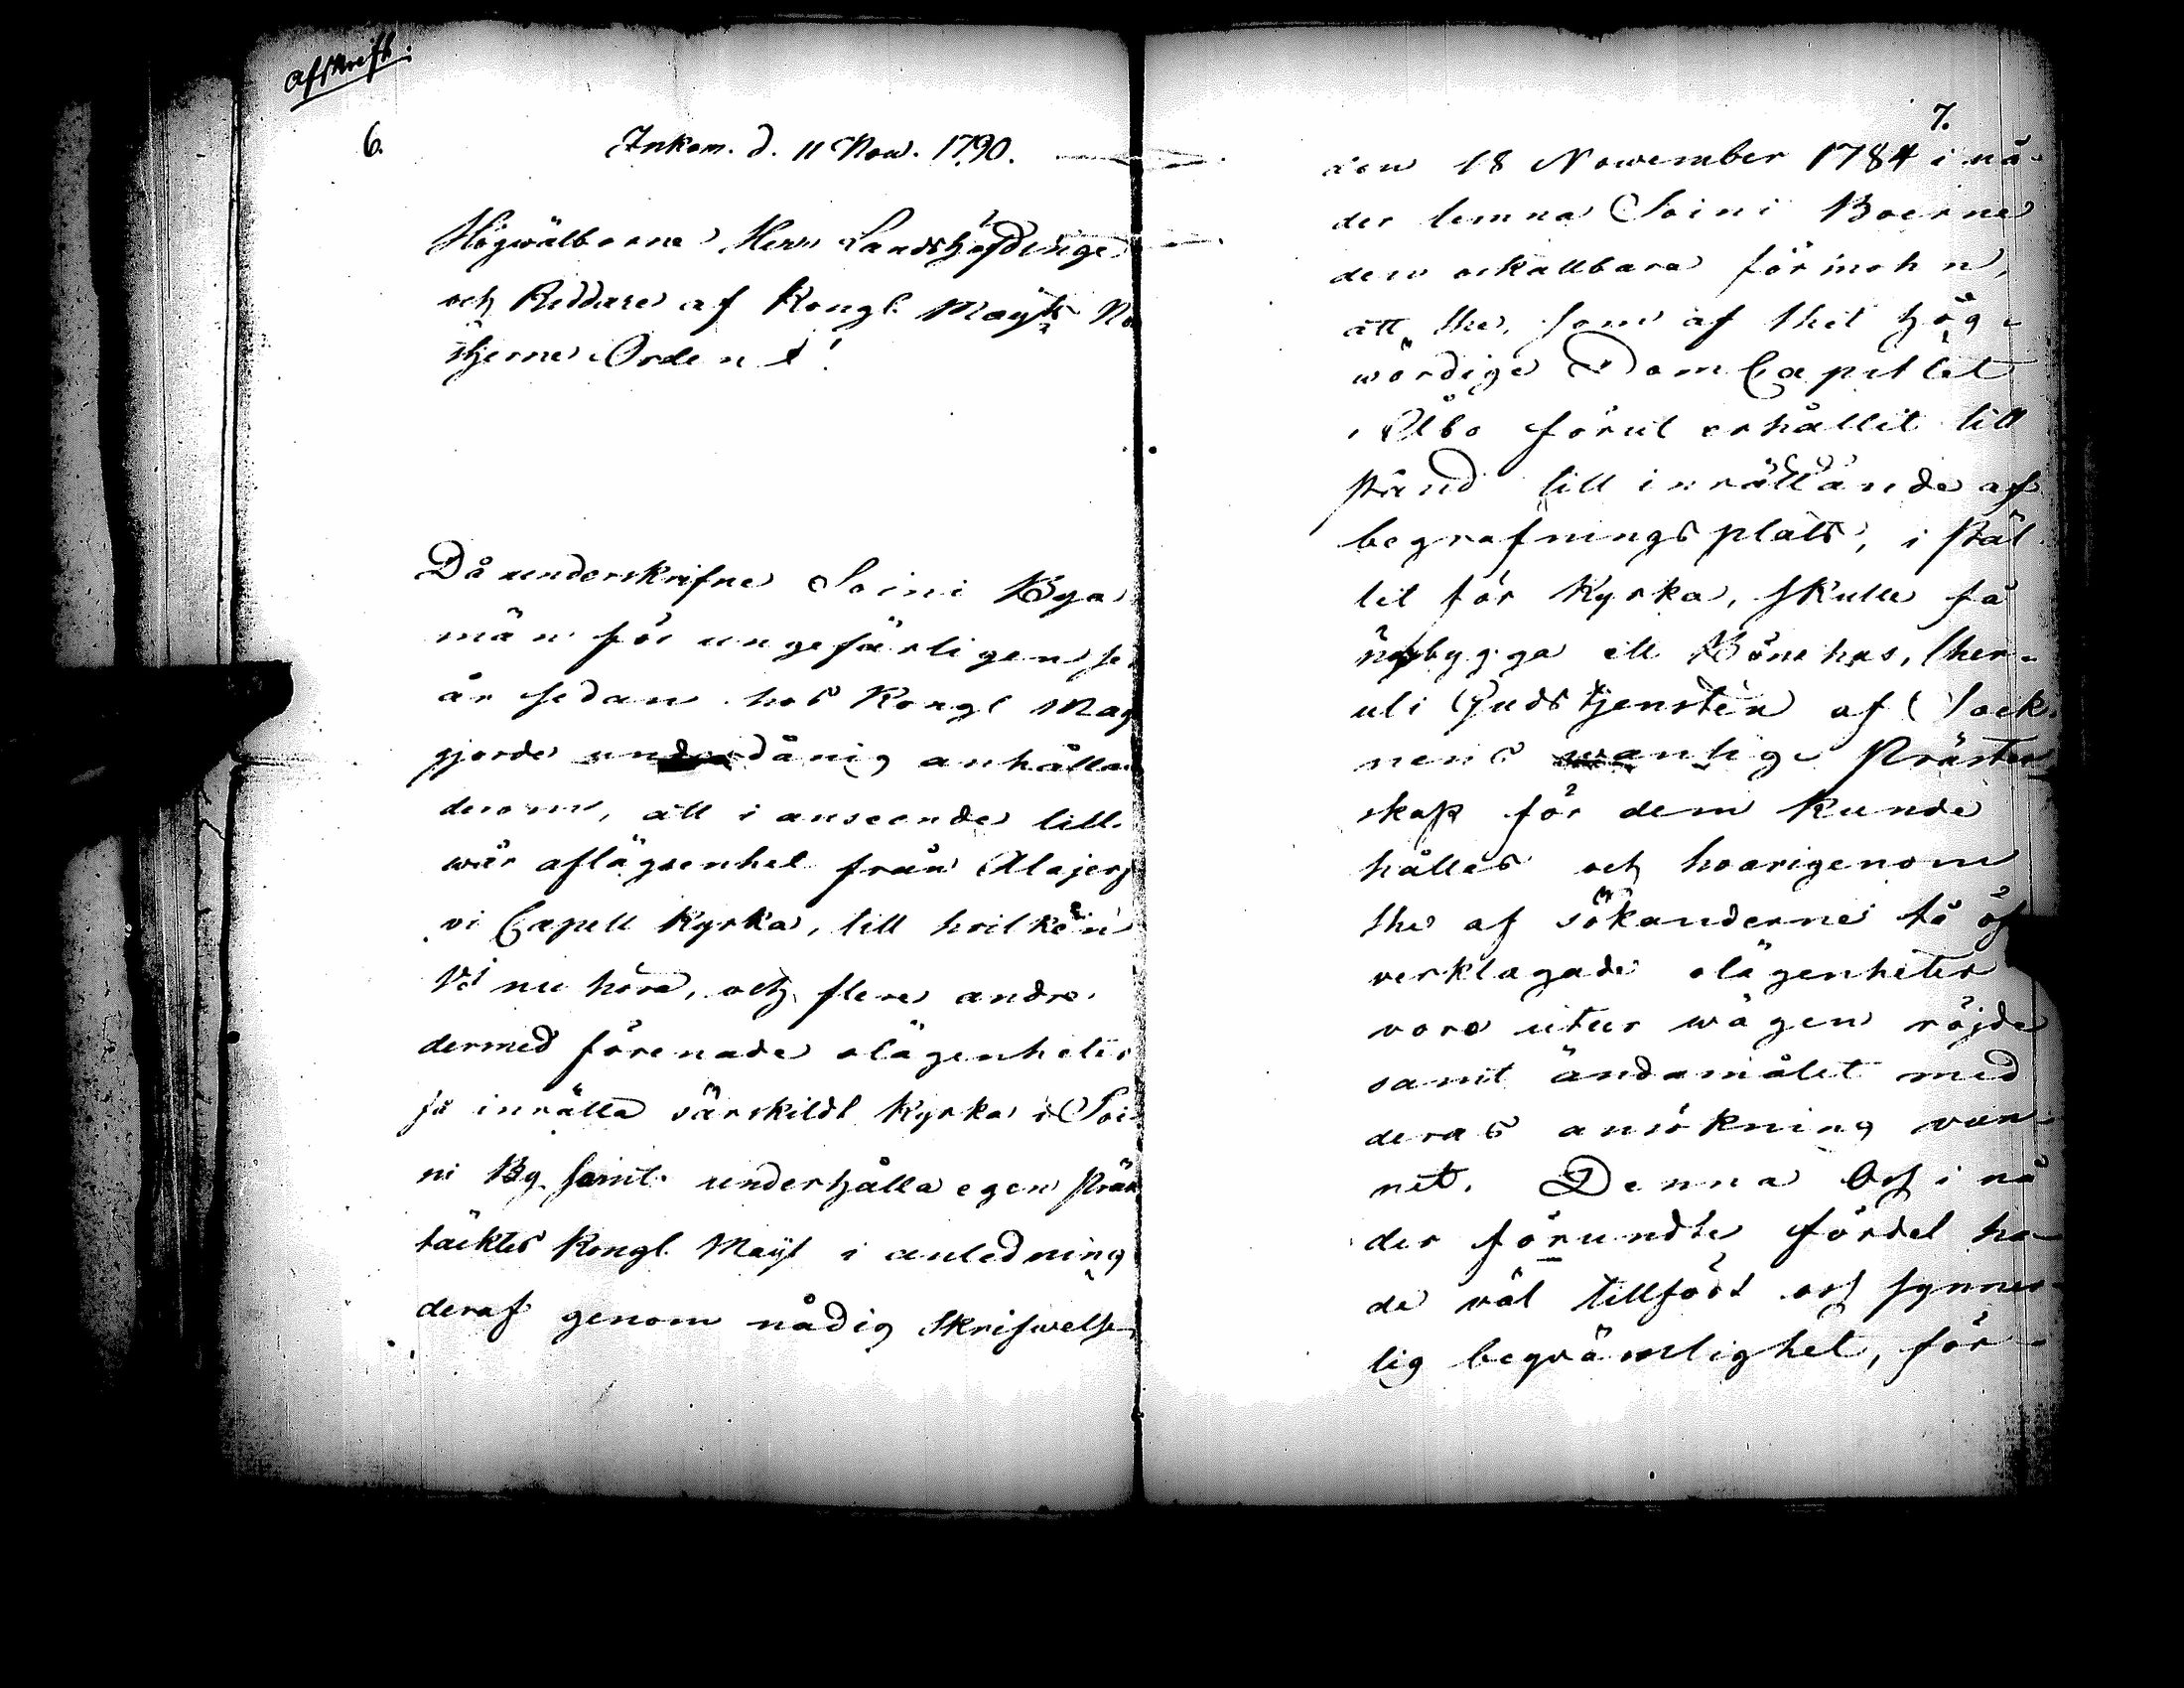 Afskrift:
6.
Inkom. d. 11 Now. 1790.
Högwälborne Herr Landshöfdinge
och Riddare af Kongl. Mayts No
stjerne Orden!
Då underskrifne Soini Bya
män för ungefärligen se
år sedan hos Kongl May
gjorde underdånig anhållan
derom, att i anseende till
wår aflägsenhet från Alajerf
vi Capell kyrka, till hvilken
Vi nu höra, och flere andre
dermed förenade olägenheter
få inrätta särskildt kyrka i Soi
ni By samt underhålla egen Präs
täcktes Kongl. Mayt i anledning
deraf genom nådig skrifwelse
7.
den 18 November 1784 i nå-
der lemna Soini Boerne
den oskattbara förmohn,
att the, som af thet hög-
wördige Dom Capitlet
i Åbo förut erhållit till
stånd till inrättande af
begrafningsplats, i stäl
let för Kyrka, skulle få
uppbygga ett Bönehus, ther-
uti Gudstjensten af Sock-
nens wanlige Präster
skap för dem kunde
hållas och hvarigenom
the af sökanderne så öf
verklagade olägenheter
voro utur wägen röjde
samt ändamålet med
deras ansökning vun-
net. Denna Oss i nå
der förundte fördel ha
de väl tillfört oss synner
lig beqvämlighet, för-